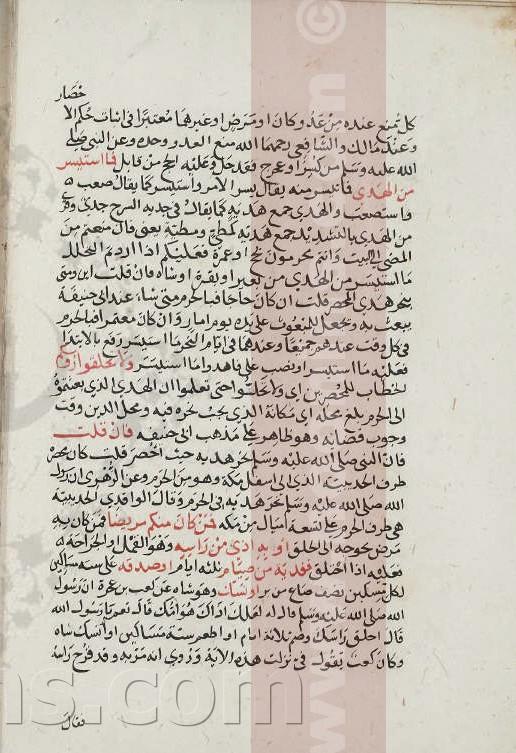 حصار
كل منع عنده من عدو كان او مرض او غيرهما معتبر في اثبات حكم الا
وعند مالك والشافعي رحمهما الله منع العدو وحده وعن النبي صلى
الله عليه وسلم من كسر او عرج فقد حل وعليه الحج من قابل فما استيسر
من الهدي فما تيسر منه يقال يسر الامر واستيسر كما يقال صعب
واستصعب والهدي جمع هدية كما يقال في جدية السرج جدي وقرئ
من الهدي بالتشديد جمع هدية كمطية ومطي يعني فان منعتم من
المضي الى البيت وانتم محرمون بحج او عمرة فعليكم اذا اردتم التحلل
ما استيسر من الهدي من بعير او بقرة او شاة فان قلت اين ومتى
ينحر هدي المحصر قلت ان كان حاجا فبالحرم متى شاء عند ابي حنيفة
يبعث به ويجعل للمبعوث على يده يوم امار وان كان معتمرا فبالحرم
في كل وقت عندهم جميعا وعندهما في ايام النحر ما استيسر رفع بالابتدا
فعليه ما استيسر او نصب على فاهدوا ما استيسر ولا تحلقوا رؤسكم
الخطاب للمحصرين اي لا تحلوا حتى تعلموا ان الهدي الذي بعثتموه
الى الحرم بلغ محله اي مكانه الذي يجب نحره فيه ومحل الدين وقت
وجوب قضائه وهو ظاهر على مذهب ابي حنيفه فان قلت
فان النبي صلى الله عليه وسلم نحر هديه حيث احصر قلت كان محصره
طرف الحديبية الذي الى اسفل مكة وهو من الحرم وعن الزهري ان رسول
الله صلى الله عليه وسلم نحر هديه في الحرم وقال الواقدي الحديبية
هي طرف الحرم على تسعة اميال من مكه فمن كان منكم مريضا فمن كان به
مرض يحوجه الى الحلق او به اذى من راسه وهو القمل او الجراحة
فعليه اذا احتلق فدية من صيام ثلثه ايام او صدقه على ستة مساكين
لكل مسكين نصف صاع من بر او نسك وهو شاه عن كعب بن عجرة ان رسول
الله صلى الله عليه وسلم قال له لعلك اذاك هوامك قال نعم يا رسول الله
قال احلق راسك وصم ثلاثة ايام او اطعم ستة مساكين او انسك شاه
وكان كعب يقول في نزلت هذه الاية وروي انه مر به وقد قرح راسه
فقال
www
ns.com
©